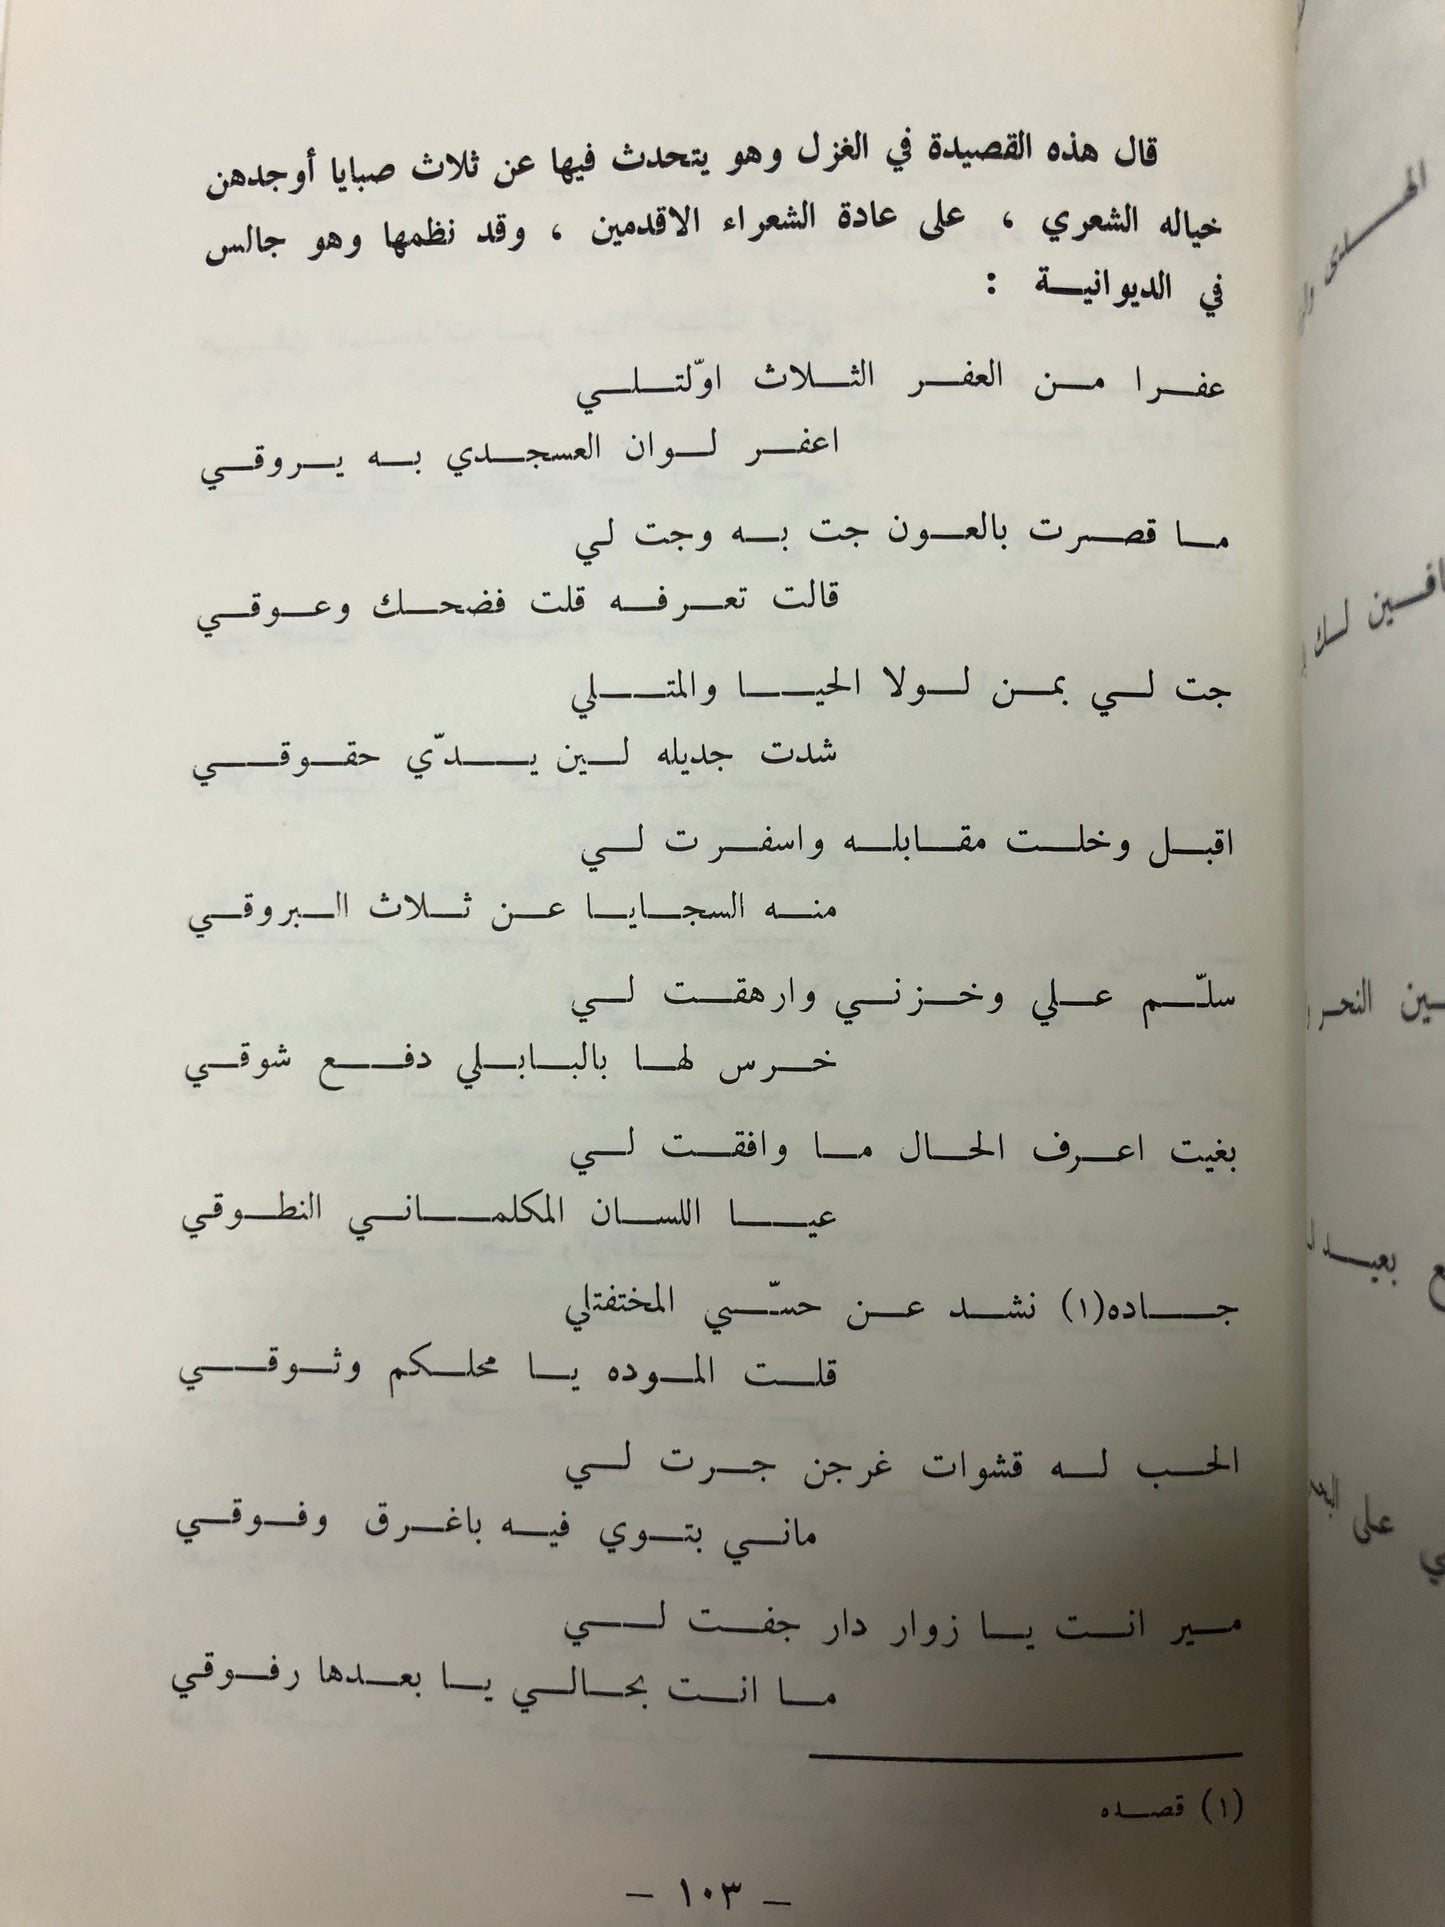 قال هذه القصيدة في الغزل وهو يتحدث فيها عن ثلاث صبايا أوجدهن
خياله الشعري ، على عادة الشعراء الاقدمين ، وقد نظمها وهو جالس
في الديوانية :
عفرا من العفر الثلاث اوّلتلي
اعفر لوان العسجدي به يروقي
ما قصرت بالعون جت به وجت لي
قالت تعرفه قلت فضحك وعوقي
جت لي بمن لولا الحيا والمتلي
شدت جديله لين يدّي حقوقي
اقبل وخلت مقابله واسفرت لي
منه السجايا عن ثلاث البروقي
سلّم علي وخزني وارهقت لي
خرس لها بالبابلي دفع شوقي
بغيت اعرف الحال ما وافقت لي
عيا اللسان المكلماني النطوقي
جاده(١) نشد عن حسّبي المختفتلي
قلت الموده يا محلكم وثوقي
الحب له قشوات غرجن جرت لي
ماني بتوي فيه باغرق وفوقي
مير انت يا زوار دار جفت لي
ما انت بحالي يا بعدها رفوقي
(١) قصده
– ١٠٣ –
الهدى
افين لك
ين النحر
ع بعيد
ي على